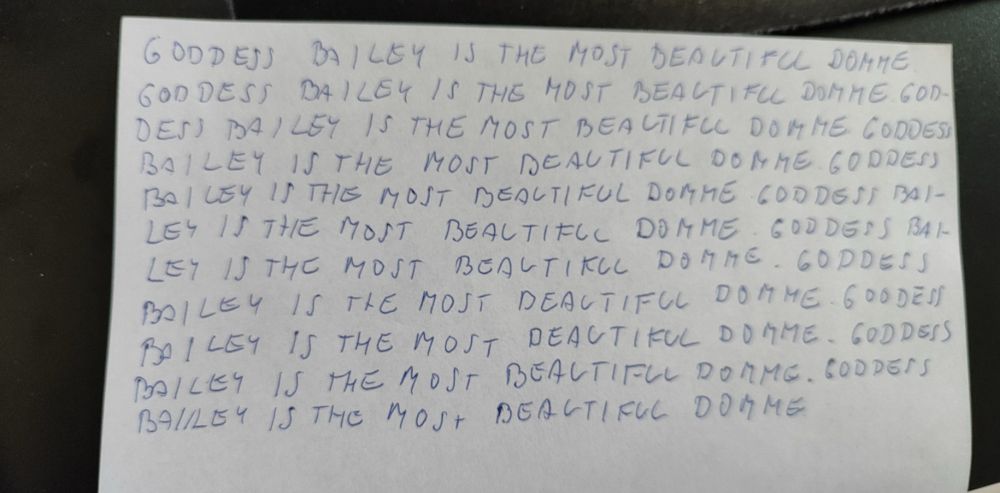 GODDESS BAILEY IS THE MOST BEAUTIFUL DOMME
GODDESS BAILEY IS THE MOST BEAUTIFUL DOMME. GOD-
DESS BAILEY IS THE MOST BEAUTIFUL DOMME GODDESS
BAILEY IS THE MOST BEAUTIFUL DOMME. GODDESS
BAILEY IS THE MOST BEAUTIFUL DOMME. GODDESS BAI-
LEY IS THE MOST BEAUTIFUL DOMME. GODDESS BAI-
LEY IS THE MOST BEAUTIFUL DOMME. GODDESS
BAILEY IS THE MOST BEAUTIFUL DOMME. GODDESS
BAILEY IS THE MOST BEAUTIFUL DOMME. GODDESS
BAILEY IS THE MOST BEAUTIFUL DOMME. GODDESS
BAILEY IS THE MOST BEAUTIFUL DOMME